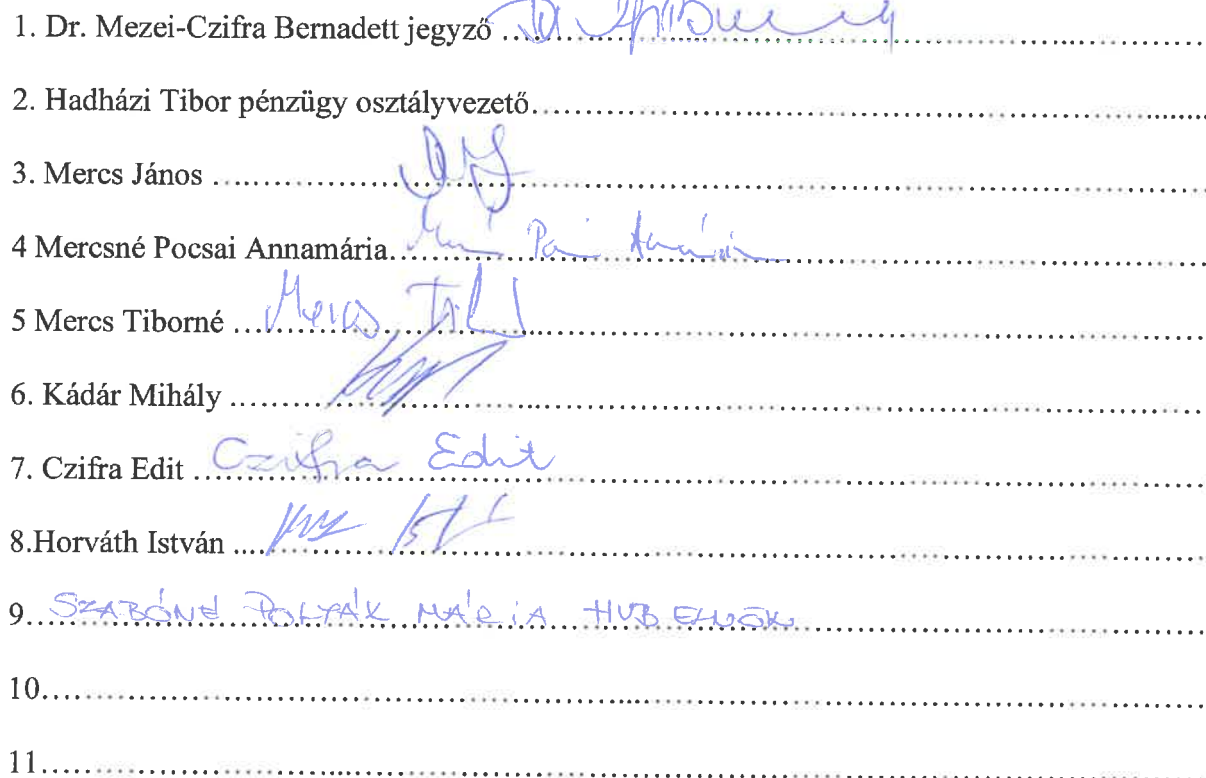 1. Dr. Mezei-Czifra Bernadett jegyző
2. Hadházi Tibor pénzügy osztályvezető
3. Mercs János
4 Mercsné Pocsai Annamária
5 Mercs Tiborné Mercs
6. Kádár Mihály
7. Czifra Edit Czifra Edit
8.Horváth István
9. SZABÓNÉ POLYÁK MÁRIA HVB ELNÖK
10.
11.